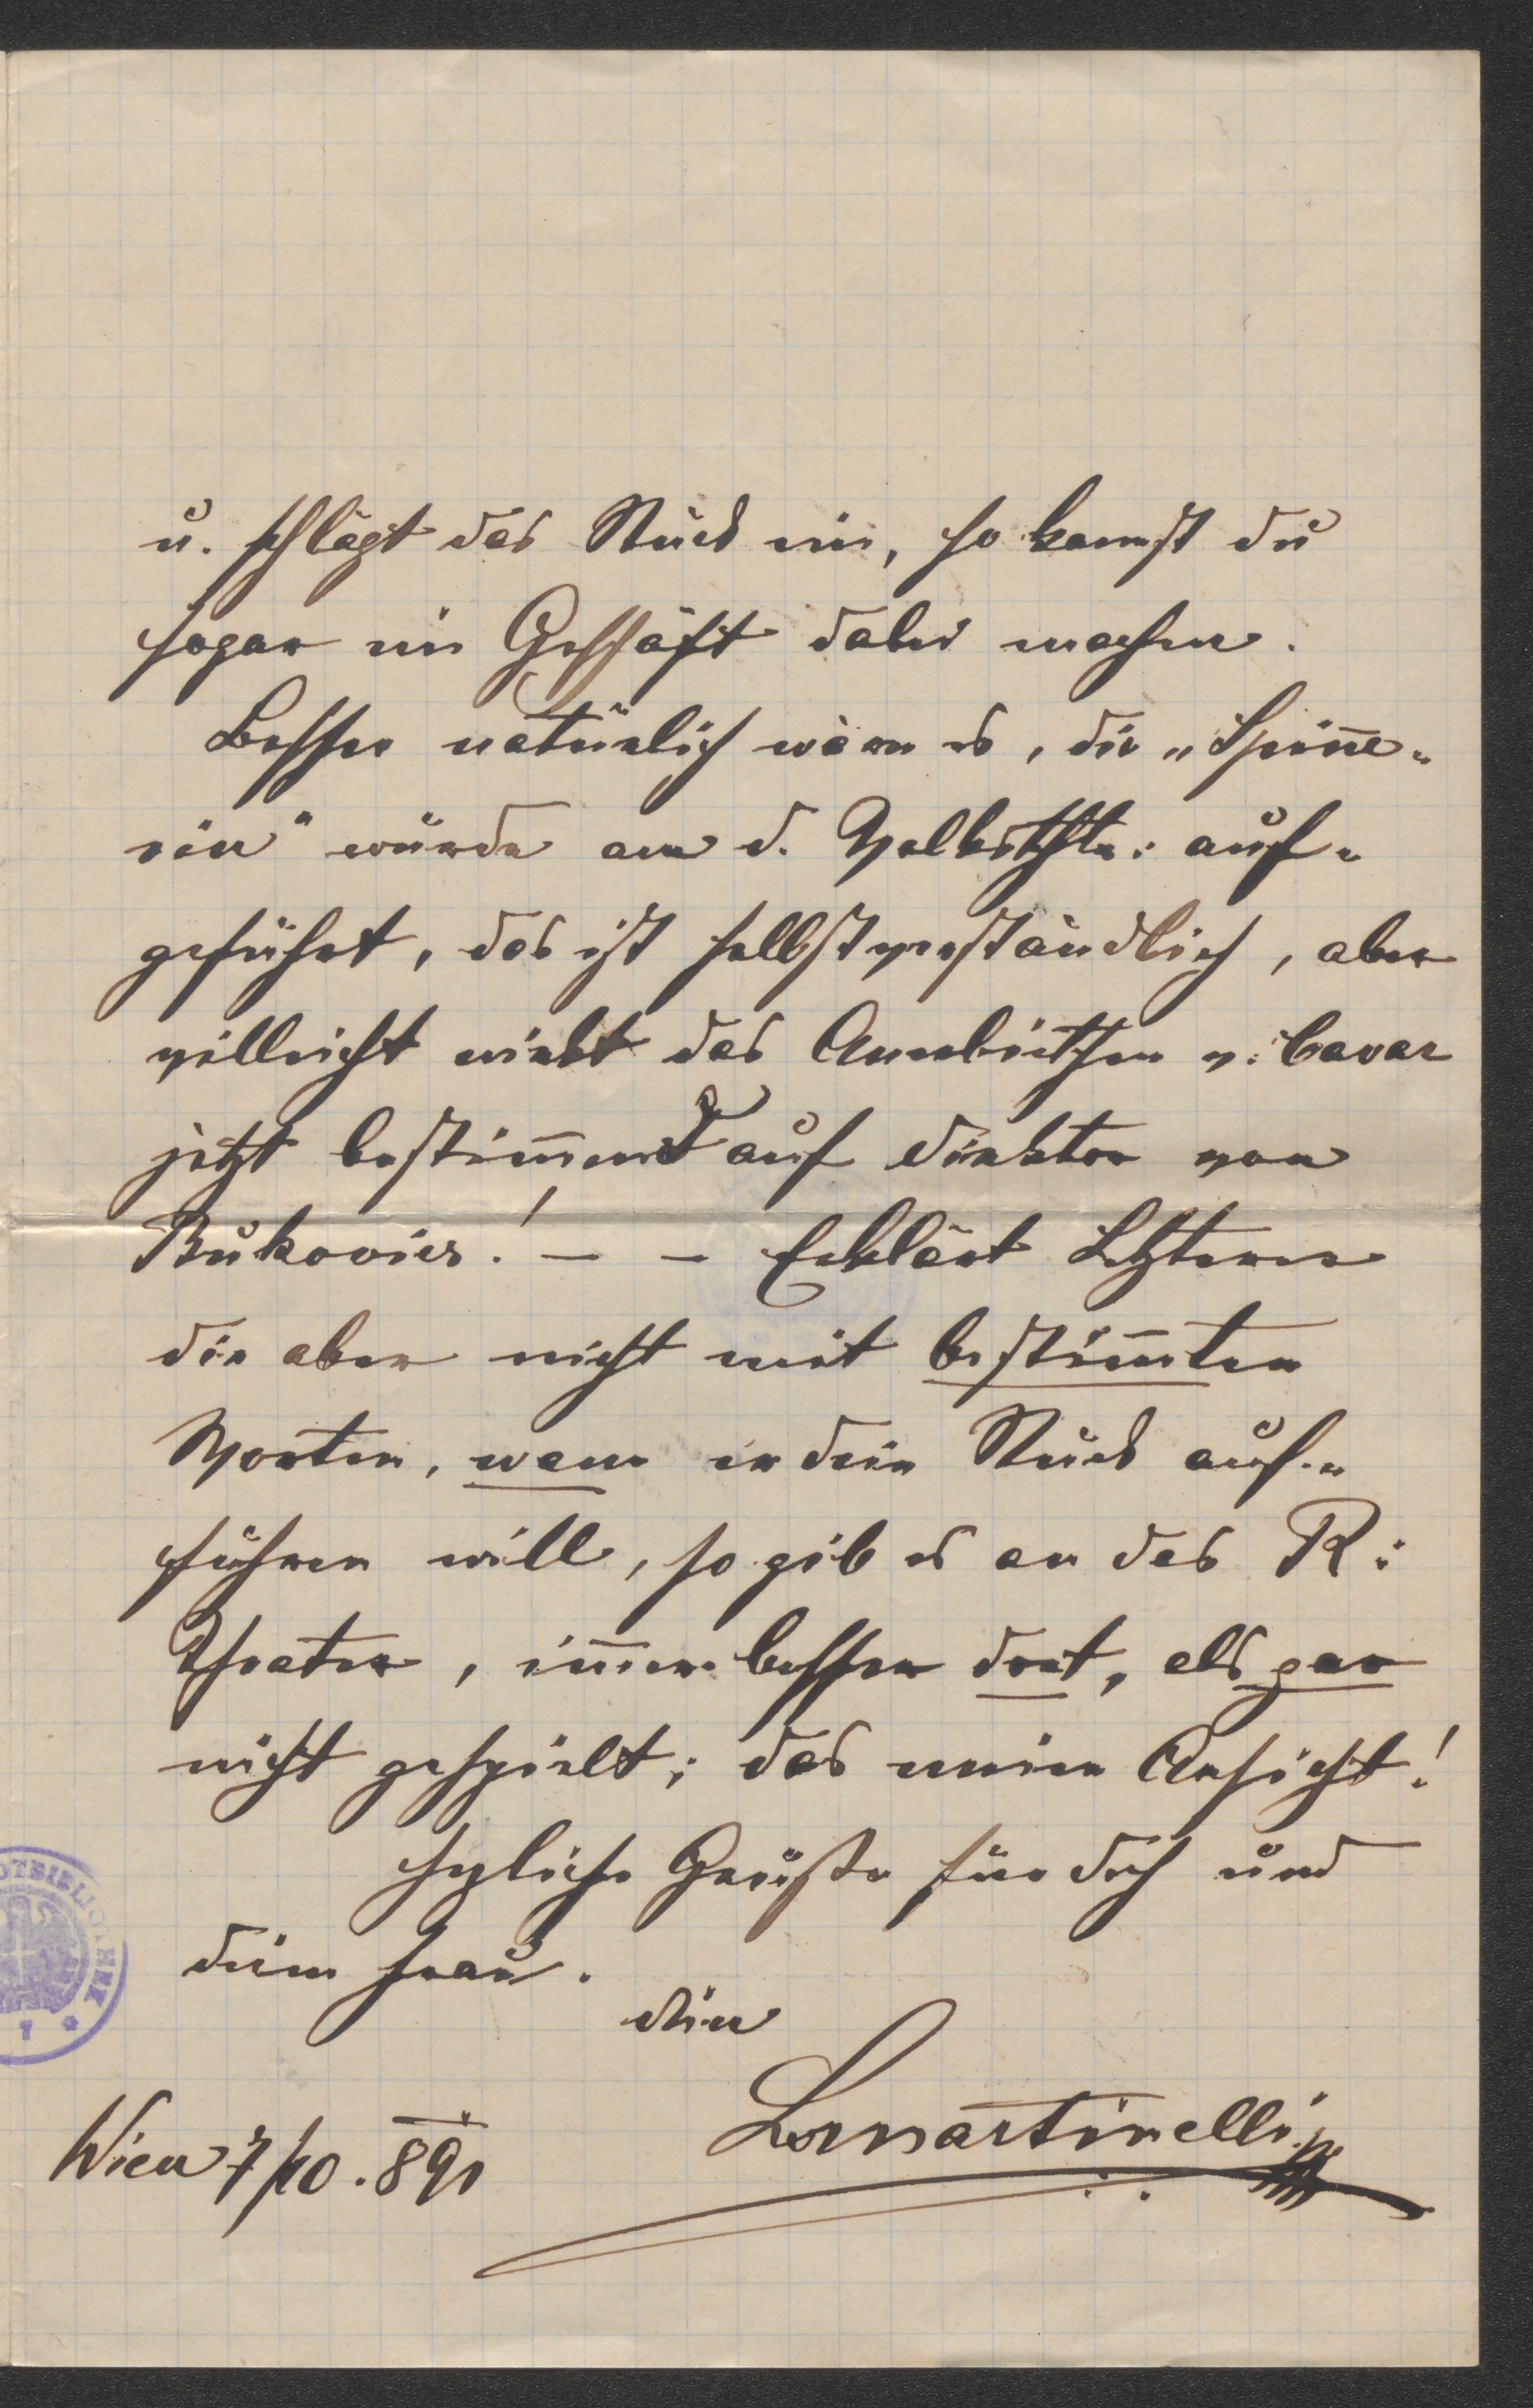 u. schlägt das Stück ein, so kannst du
sogar ein Geschäft dabei machen.
Besser natürlich wäre es, die „Spinne-
rin" würde am d. Volksthtr: auf-
geführt, das ist selbstverständlich, aber
vielleicht wirkt das Anerbieten v. Cavar
jetzt bestimmend auf Direktor von
Bukovics! – – Erklärt Letzterer
dir aber nicht mit bestim̅ten
Worten, wann er dein Stück auf-
führen will, so gib es an das R:
Theater, im̅er besser dort, als gar
nicht gespielt; das meine Ansicht!
Herzliche Grüße für dich und
deine Frau.
dein
LMartinelli
Wien 7/10.891